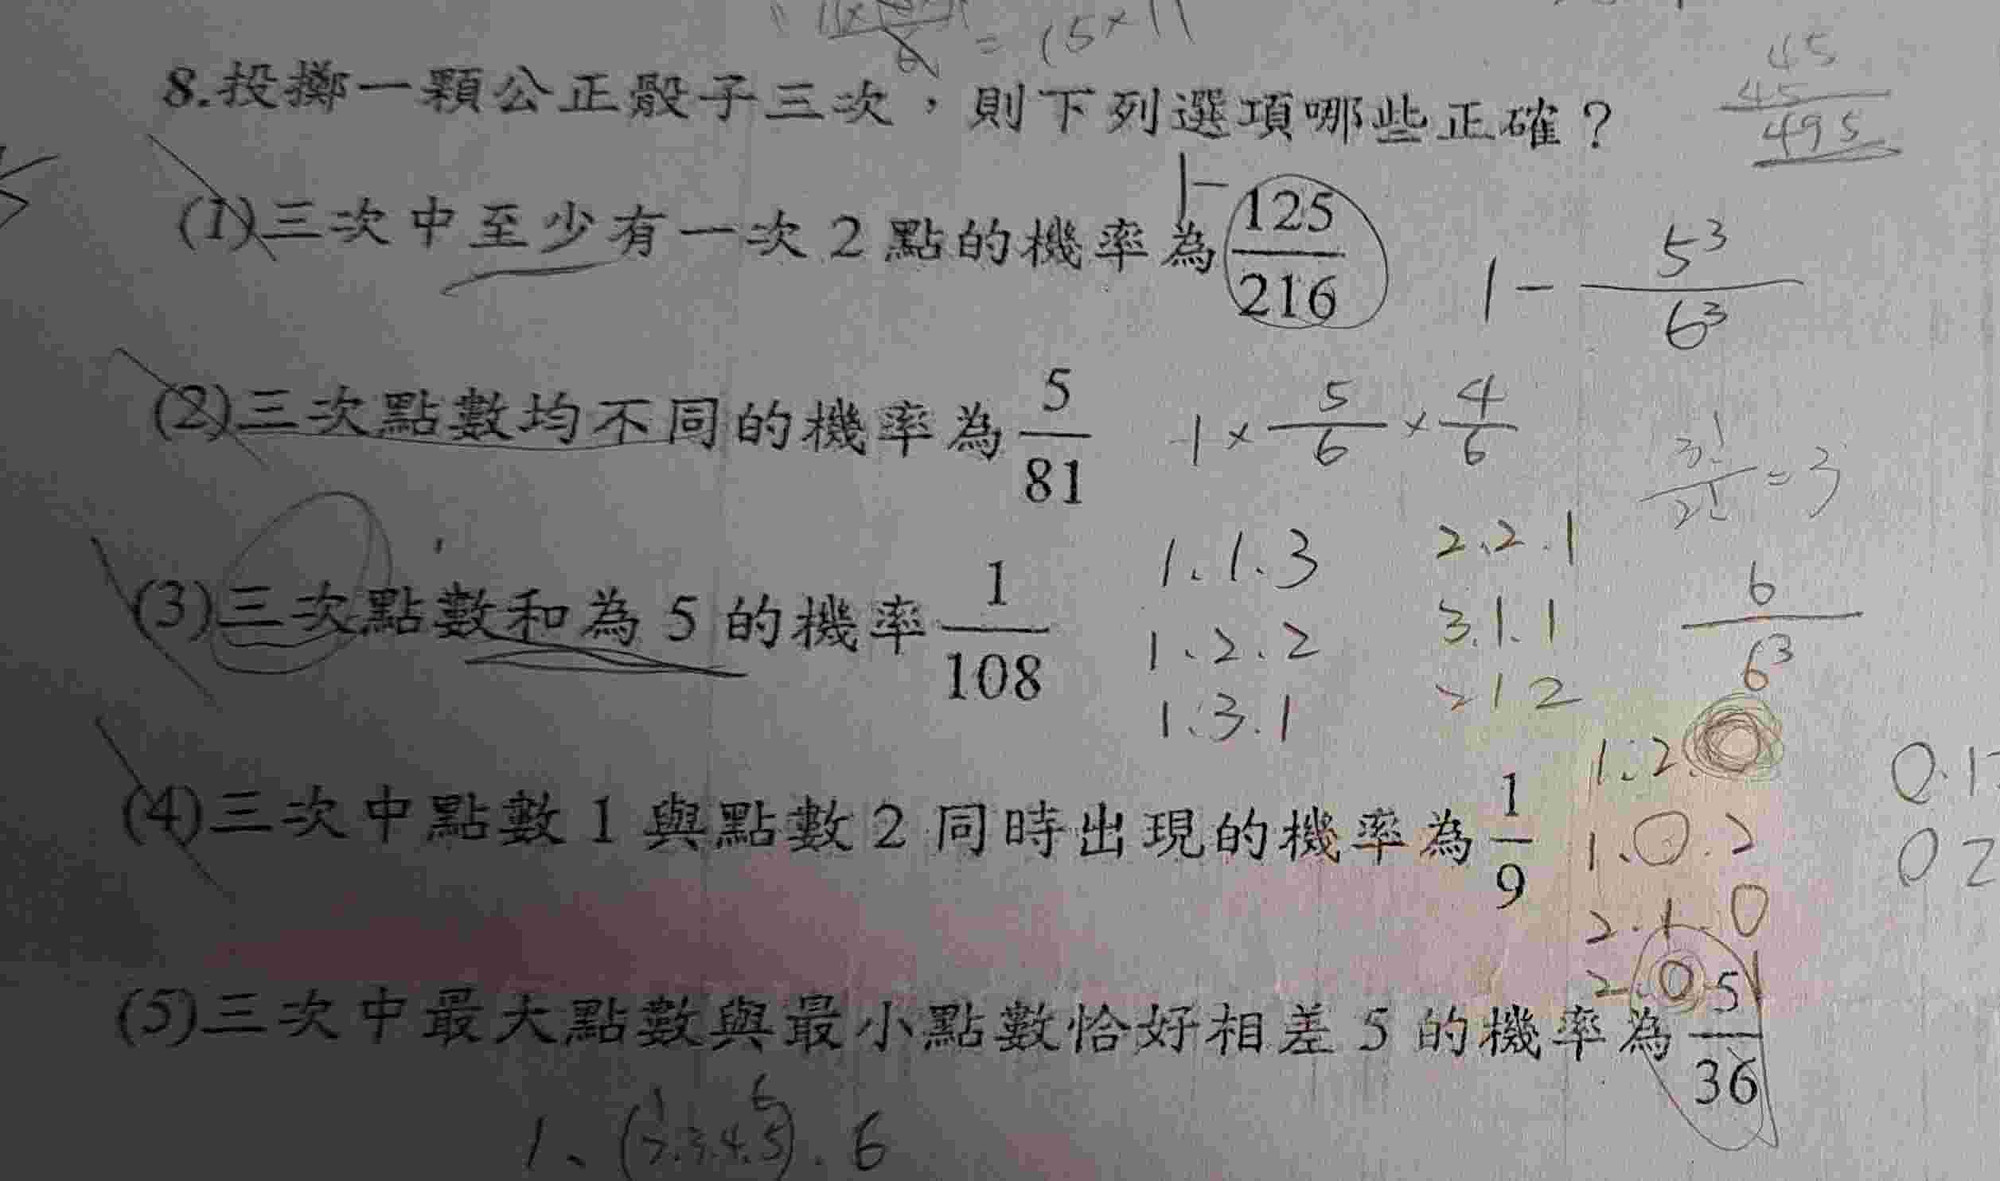 = (5×11
45
45
495
8.投擲一顆公正骰子三次，則下列選項哪些正確？
(1)三次中至少有一次 2 點的機率為 125/216
1-
1 - 5³/6³
(2)三次點數均不同的機率為 5/81
1 × 5/6 × 4/6
3!/2! = 3
(3)三次點數和為 5 的機率 1/108
1.1.3 2.2.1
1.2.2 3.1.1
1.3.1 2 1 2
6/6³
(4)三次中點數 1 與點數 2 同時出現的機率為 1/9
1.2.
1.0.2
2.1.0
2.0.1
0.1
0 2
(5)三次中最大點數與最小點數恰好相差 5 的機率為 5/36
1 6
1、(2.3.4.5).6